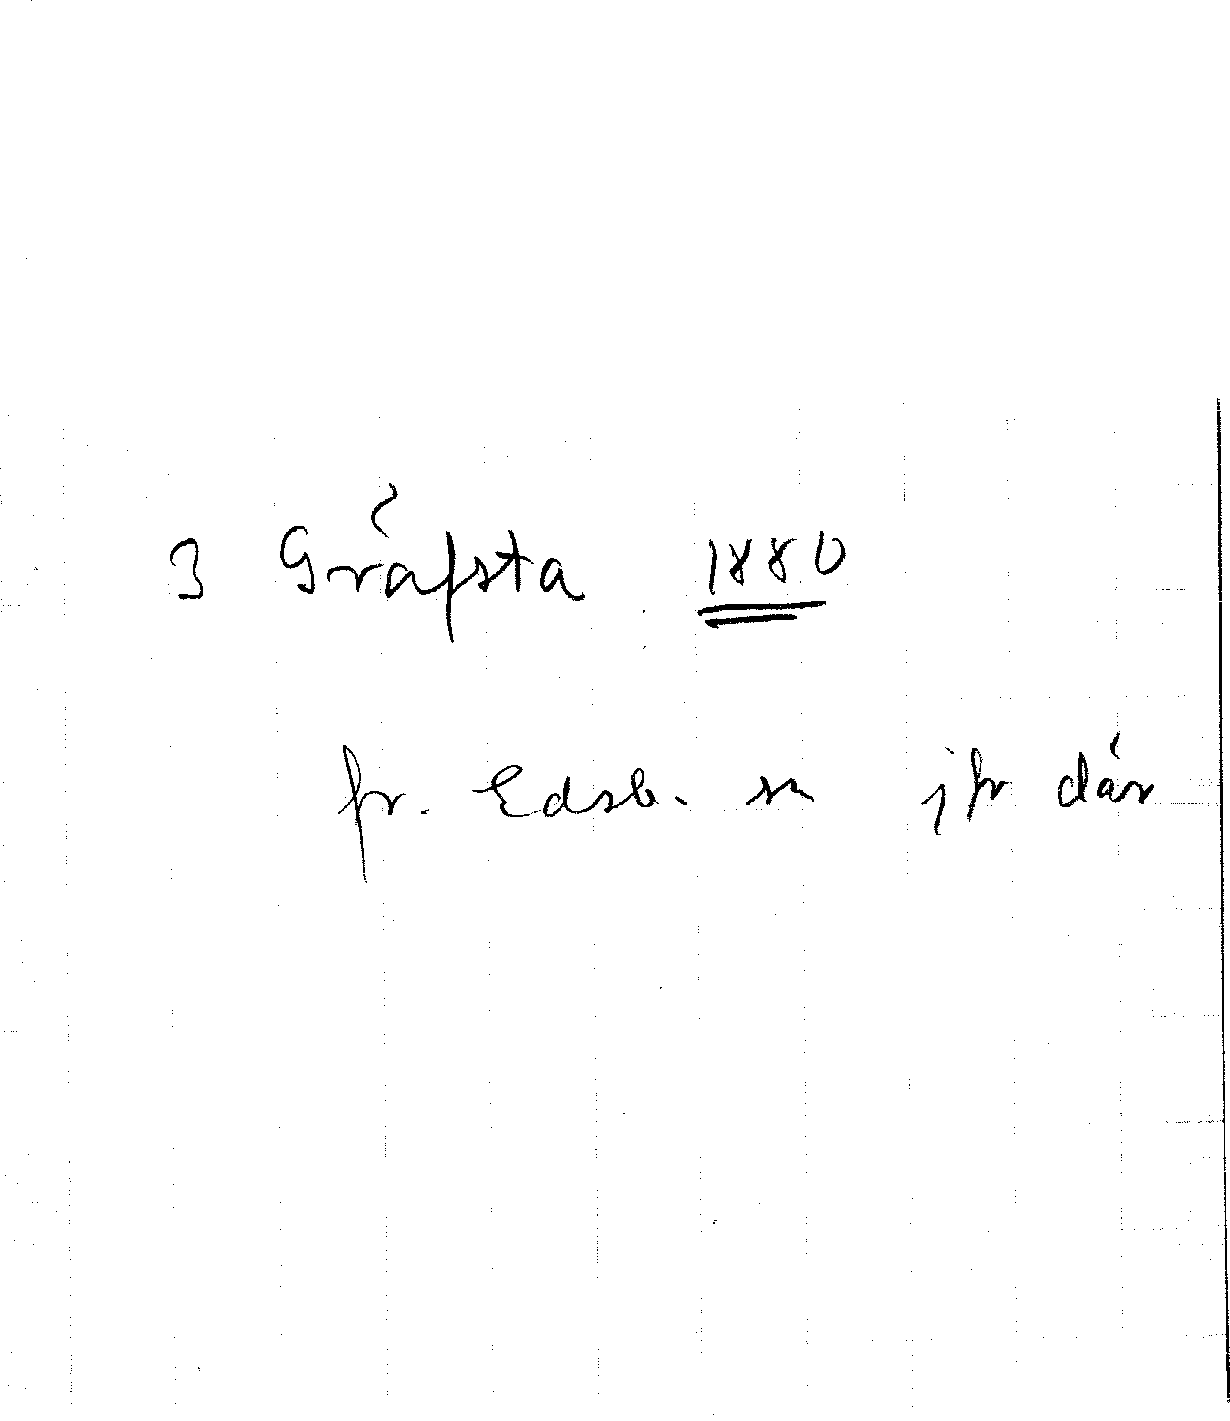 3 Gräfsta 1880
fr. Edsb. sn jfr där